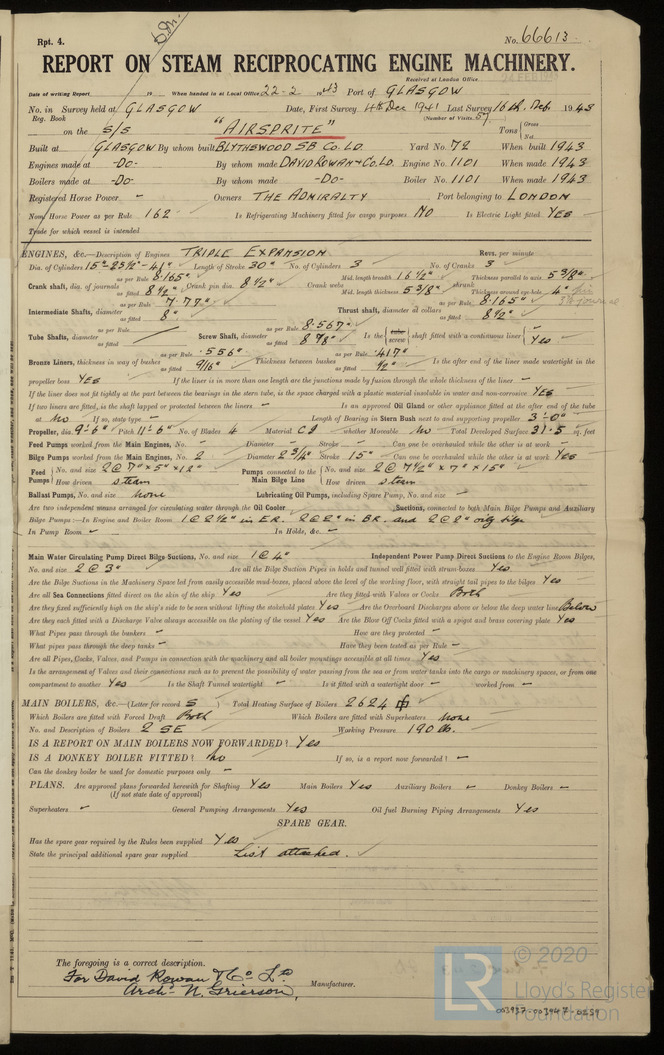 Rpt. 4.
No. 66613
REPORT ON STEAM RECIPROCATING ENGINE MACHINERY.
Received at London Office 24 FEB
Date of writing Report 19 When handed in at Local Office 22-2 1943 Port of GLASGOW
No. in Survey held at GLASGOW Date, First Survey 4th Dec 1941 Last Survey 16th Feb 1943
Reg. Book (Number of Visits 57)
on the S/S "AIRSPRITE" Tons { Gross Net
Built at GLASGOW By whom built BLYTHSWOOD SB Co. LD. Yard No. 72 When built 1943
Engines made at -Do- By whom made DAVID ROWAN & Co. LD. Engine No. 1101 When made 1943
Boilers made at -Do- By whom made -Do- Boiler No. 1101 When made 1943
Registered Horse Power - Owners THE ADMIRALTY Port belonging to LONDON
Nom. Horse Power as per Rule 162 Is Refrigerating Machinery fitted for cargo purposes NO Is Electric Light fitted YES
Trade for which vessel is intended
ENGINES, &c.—Description of Engines TRIPLE EXPANSION Revs. per minute
Dia. of Cylinders 15"-25½"-41" Length of Stroke 30" No. of Cylinders 3 No. of Cranks 3
Crank shaft, dia. of journals as per Rule 8.165" as fitted 8½" Crank pin dia. 8½" Crank webs Mid. length breadth 16½" Mid. length thickness 5⅜" shrunk Thickness parallel to axis 5⅜" Thickness around eye-hole 4"
Intermediate Shafts, diameter as per Rule 7.77" as fitted 8" Thrust shaft, diameter at collars as per Rule 8.165" as fitted 8½"
Tube Shafts, diameter as per Rule as fitted Screw Shaft, diameter as per Rule 8.567" as fitted 8⅞" Is the { tube screw } shaft fitted with a continuous liner { - Yes
Bronze Liners, thickness in way of bushes as per Rule .556" as fitted 9/16" Thickness between bushes as per Rule .417" as fitted ½" Is the after end of the liner made watertight in the
propeller boss YES If the liner is in more than one length are the junctions made by fusion through the whole thickness of the liner -
If the liner does not fit tightly at the part between the bearings in the stern tube, is the space charged with a plastic material insoluble in water and non-corrosive YES
If two liners are fitted, is the shaft lapped or protected between the liners - Is an approved Oil Gland or other appliance fitted at the after end of the tube
shaft No If so, state type - Length of Bearing in Stern Bush next to and supporting propeller 3'-0"
Propeller, dia. 9'-6" Pitch 11'-6" No. of Blades 4 Material CI whether Moveable No Total Developed Surface 31.5 sq. feet
Feed Pumps worked from the Main Engines, No. - Diameter - Stroke - Can one be overhauled while the other is at work -
Bilge Pumps worked from the Main Engines, No. 2 Diameter 2¾" Stroke 15" Can one be overhauled while the other is at work Yes
Feed Pumps { No. and size 2 @ 7" x 5" x 12" How driven steam Pumps connected to the Main Bilge Line { No. and size 2 @ 7½" x 7" x 15" How driven steam
Ballast Pumps, No. and size None Lubricating Oil Pumps, including Spare Pump, No. and size -
Are two independent means arranged for circulating water through the Oil Cooler Suctions, connected to both Main Bilge Pumps and Auxiliary
Bilge Pumps:—In Engine and Boiler Room 1 @ 2½" in ER. 2 @ 2" in BR. and 2 @ 2" oily bilge
In Pump Room - In Holds, &c. -
Main Water Circulating Pump Direct Bilge Suctions, No. and size 1 @ 4" Independent Power Pump Direct Suctions to the Engine Room Bilges,
No. and size 2 @ 3" Are all the Bilge Suction Pipes in holds and tunnel well fitted with strum-boxes Yes
Are the Bilge Suctions in the Machinery Space led from easily accessible mud-boxes, placed above the level of the working floor, with straight tail pipes to the bilges Yes
Are all Sea Connections fitted direct on the skin of the ship Yes Are they fitted with Valves or Cocks Both
Are they fixed sufficiently high on the ship's side to be seen without lifting the stokehold plates Yes Are the Overboard Discharges above or below the deep water line Below
Are they each fitted with a Discharge Valve always accessible on the plating of the vessel Yes Are the Blow Off Cocks fitted with a spigot and brass covering plate Yes
What Pipes pass through the bunkers - How are they protected -
What pipes pass through the deep tanks - Have they been tested as per Rule -
Are all Pipes, Cocks, Valves, and Pumps in connection with the machinery and all boiler mountings accessible at all times Yes
Is the arrangement of Valves and their connections such as to prevent the possibility of water passing from the sea or from water tanks into the cargo or machinery spaces, or from one
compartment to another Yes Is the Shaft Tunnel watertight - Is it fitted with a watertight door - worked from -
MAIN BOILERS, &c.—(Letter for record S) Total Heating Surface of Boilers 2624
Which Boilers are fitted with Forced Draft Both Which Boilers are fitted with Superheaters None
No. and Description of Boilers 2 SE Working Pressure 190 lb.
IS A REPORT ON MAIN BOILERS NOW FORWARDED? Yes
IS A DONKEY BOILER FITTED? No If so, is a report now forwarded? -
Can the donkey boiler be used for domestic purposes only -
PLANS. Are approved plans forwarded herewith for Shafting Yes Main Boilers Yes Auxiliary Boilers - Donkey Boilers -
(If not state date of approval)
Superheaters - General Pumping Arrangements Yes Oil fuel Burning Piping Arrangements Yes
SPARE GEAR.
Has the spare gear required by the Rules been supplied Yes
State the principal additional spare gear supplied List attached.
The foregoing is a correct description.
For David Rowan & Co Ld
Archd N. Grierson, Manufacturer.
LR © 2020
Lloyd's Register
Foundation
003937-003947-0239